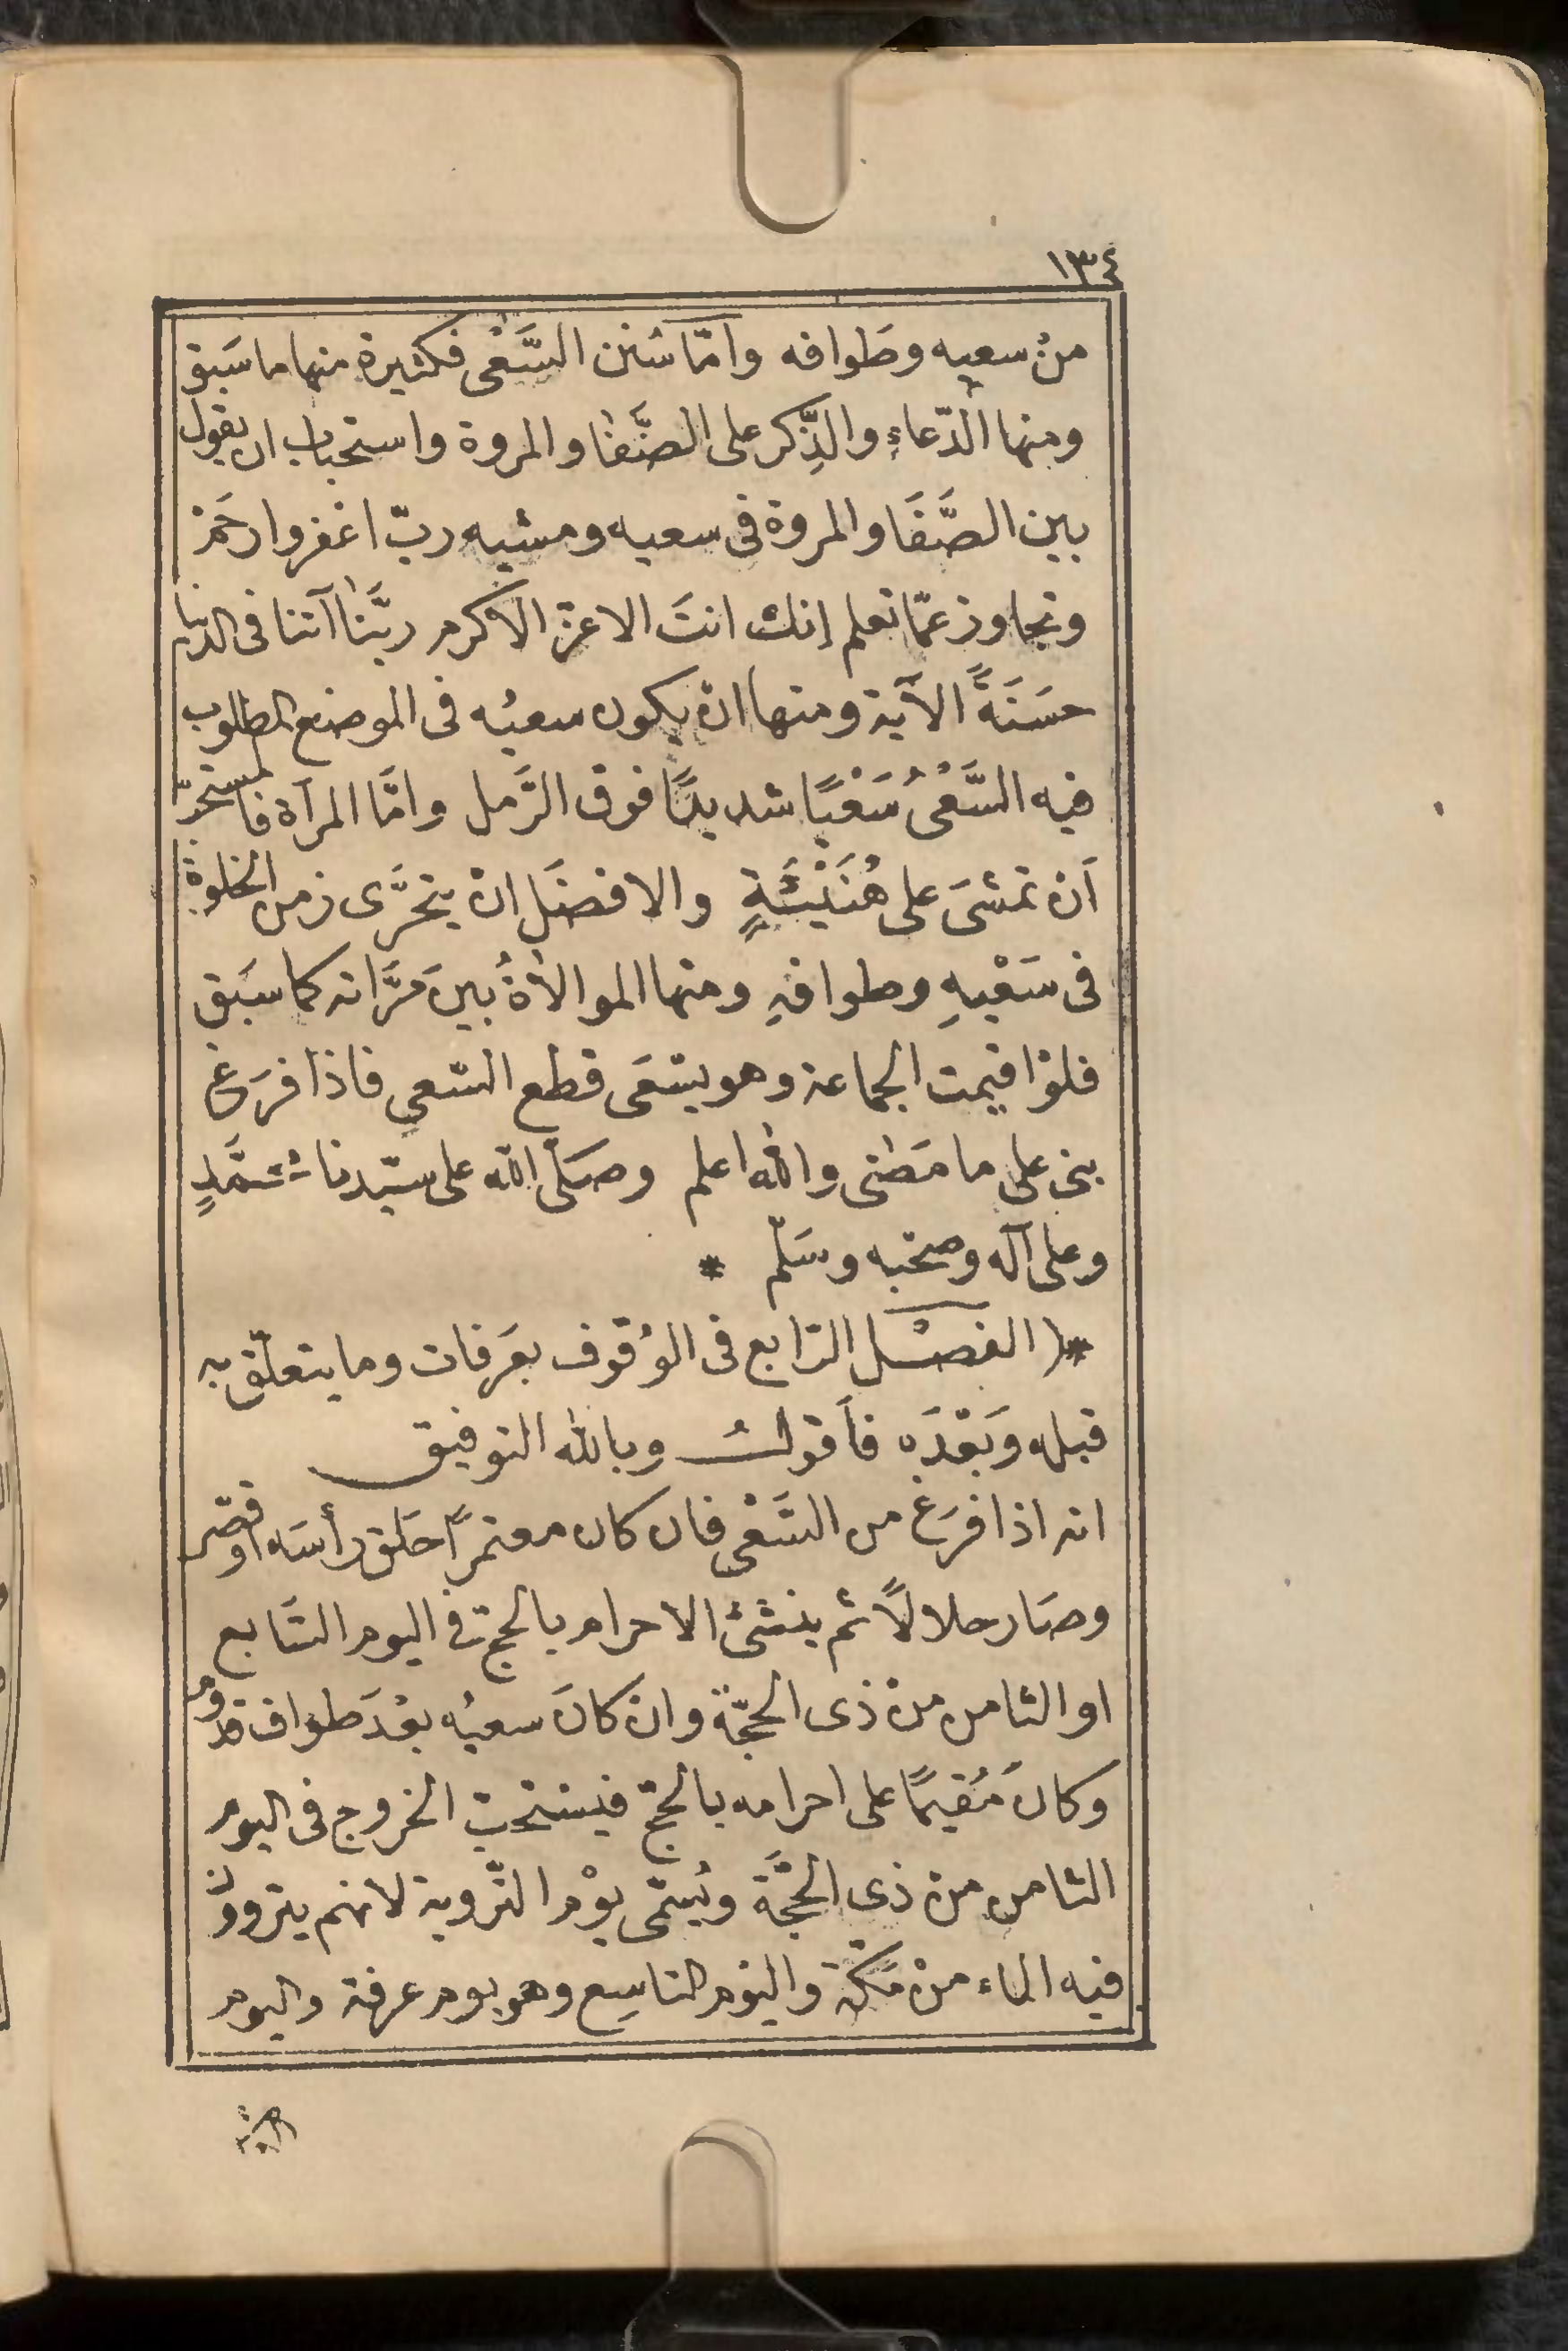 ١٣٤
منْ سعيه وطَوافه وامّا سُنن السَّعْى فكثيرة منها ما سَبَق
ومنها الدّعاءِ والذِّكر على الصَّفا والمروة واستحباب ان يقول
بين الصَّفَا والمروة فى سعيه ومشيه ربّ اغفر وارحَمْ
وتجاوز عمّا تعلم إنك انتَ الاعزّ الاكرم ربَّنا آتنا فى الدنيا
حسَنَةً الآية ومنها انْ يكون سعيُه فى الموضع المطلوب
فيه السَّعْىُ سَعْيًا شديدًا فوق الرَّمل وامَّا المرآة فالمستحبّ
اَنْ تمشىَ على هُنَيْئَةٍ والافضَل انْ يتحَرَّى زمن الخلوة
فى سَعْيهِ وطوافهِ ومنها الموالاةُ بينَ مَرَّاته كما سَبَق
فلوْ اقيمت الجماعة وهو يسْعَى قطع السّعى فاذا فرَغ
بنى على ما مَضى والله اعلم وصَلّى الله على سيّدنا محَمَّدٍ
وعلى آله وصحْبه وسَلّم *
*( الفصْل الرّابع فى الوُقوف بعَرفات وما يتعلّق به
قبله وَبَعْدَه فأقولُ وبالله التوفيق
انه اذا فرَغ من السَّعْى فان كان معتمرًا حَلق رأسَه اوقصّر
وصَار حلالاً ثم ينشئ الاحرام بالحجّ فى اليوم السَّابع
او الثامن منْ ذى الحجّة وانْ كانَ سعيُه بعْدَ طواف قدوم
وكانَ مُقيمًا على احرامه بالحجّ فيستحبّ الخروج فى اليوم
الثامن منْ ذى الحجَّة ويُسَمّى يوْم التّروية لانهم يتروون
فيه الماء منْ مَكّة واليَوْم التاسِع وهو يوم عرفة واليوم